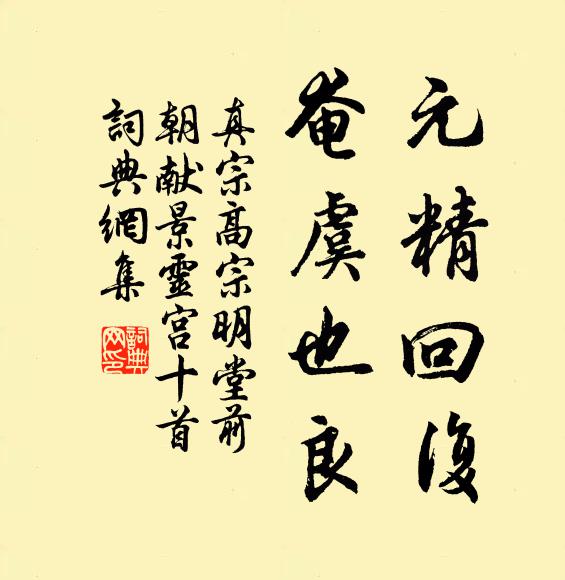 元精回復
奄虞也良
真宗高宗明堂前
朝献景靈宫十首
詞典網集
詞典
网印